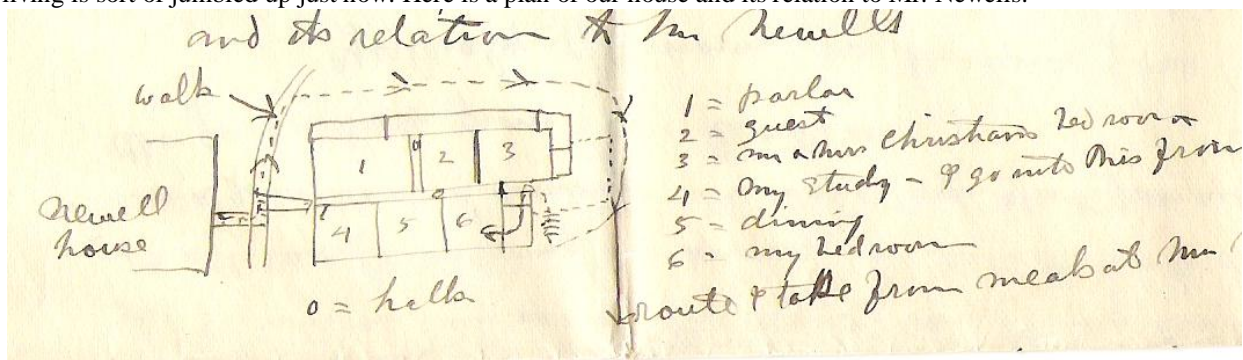 living is sort of jumbled up just now. Here is a plan of our house and its relation to Mr. Newells.
and its relation to Mr Newells
walk
Newell
house
1 2 3
4 5 6
0 = halls
1 = parlor
2 = guest
3 = Mr & Mrs Christians bed room
4 = my study - I go into this from
5 = dining
6 = my bedroom
route I take from meals at Mr